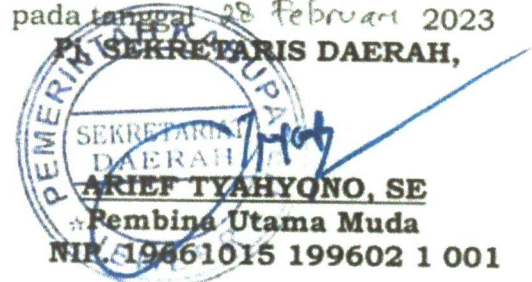 pada tanggal 28 Februari 2023
Pj. SEKRETARIS DAERAH,
PEMERINTAH KABUPA
SEKRETARIAT
DAERAH
ARIEF TYAHYONO, SE
Pembina Utama Muda
NIP. 19661015 199602 1 001